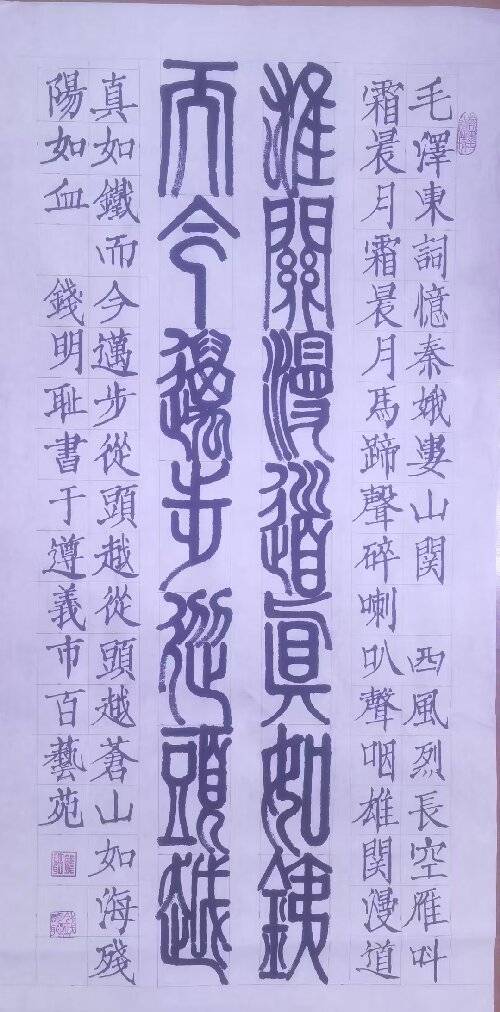 毛澤東詞憶秦娥婁山関 西風烈長空雁叫
霜晨月霜晨月馬蹄聲碎喇叭聲咽雄関漫道
雄關漫道眞如銕
而今邁步從頭越
真如鐵而今邁步從頭越從頭越蒼山如海殘
陽如血 錢明耻書于遵義市百藝苑